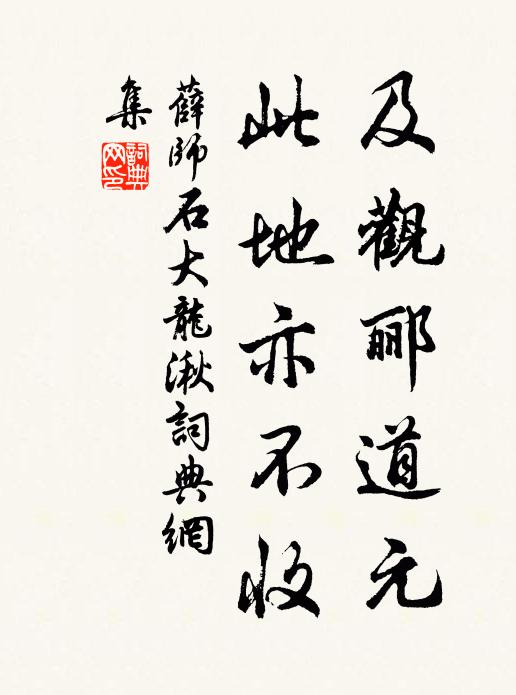 及觀酈道元
此地亦不收
薛師石大龍湫詞典網
集
詞典
网印